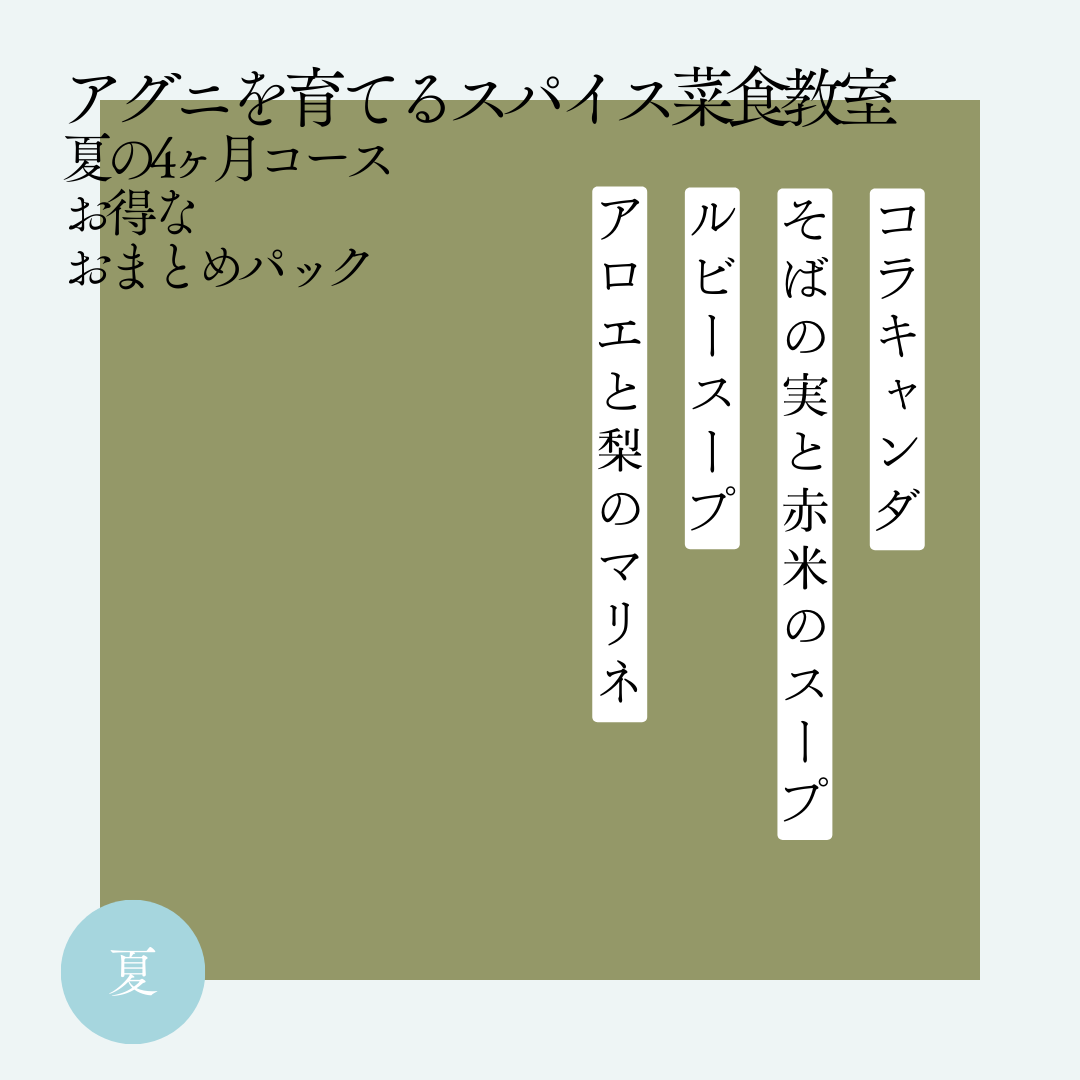 アグニを育てるスパイス菜食教室
夏の4ヶ月コース
お得な
おまとめパック
コラキャンダ
そばの実と赤米のスープ
ルビースープ
アロエと梨のマリネ
夏